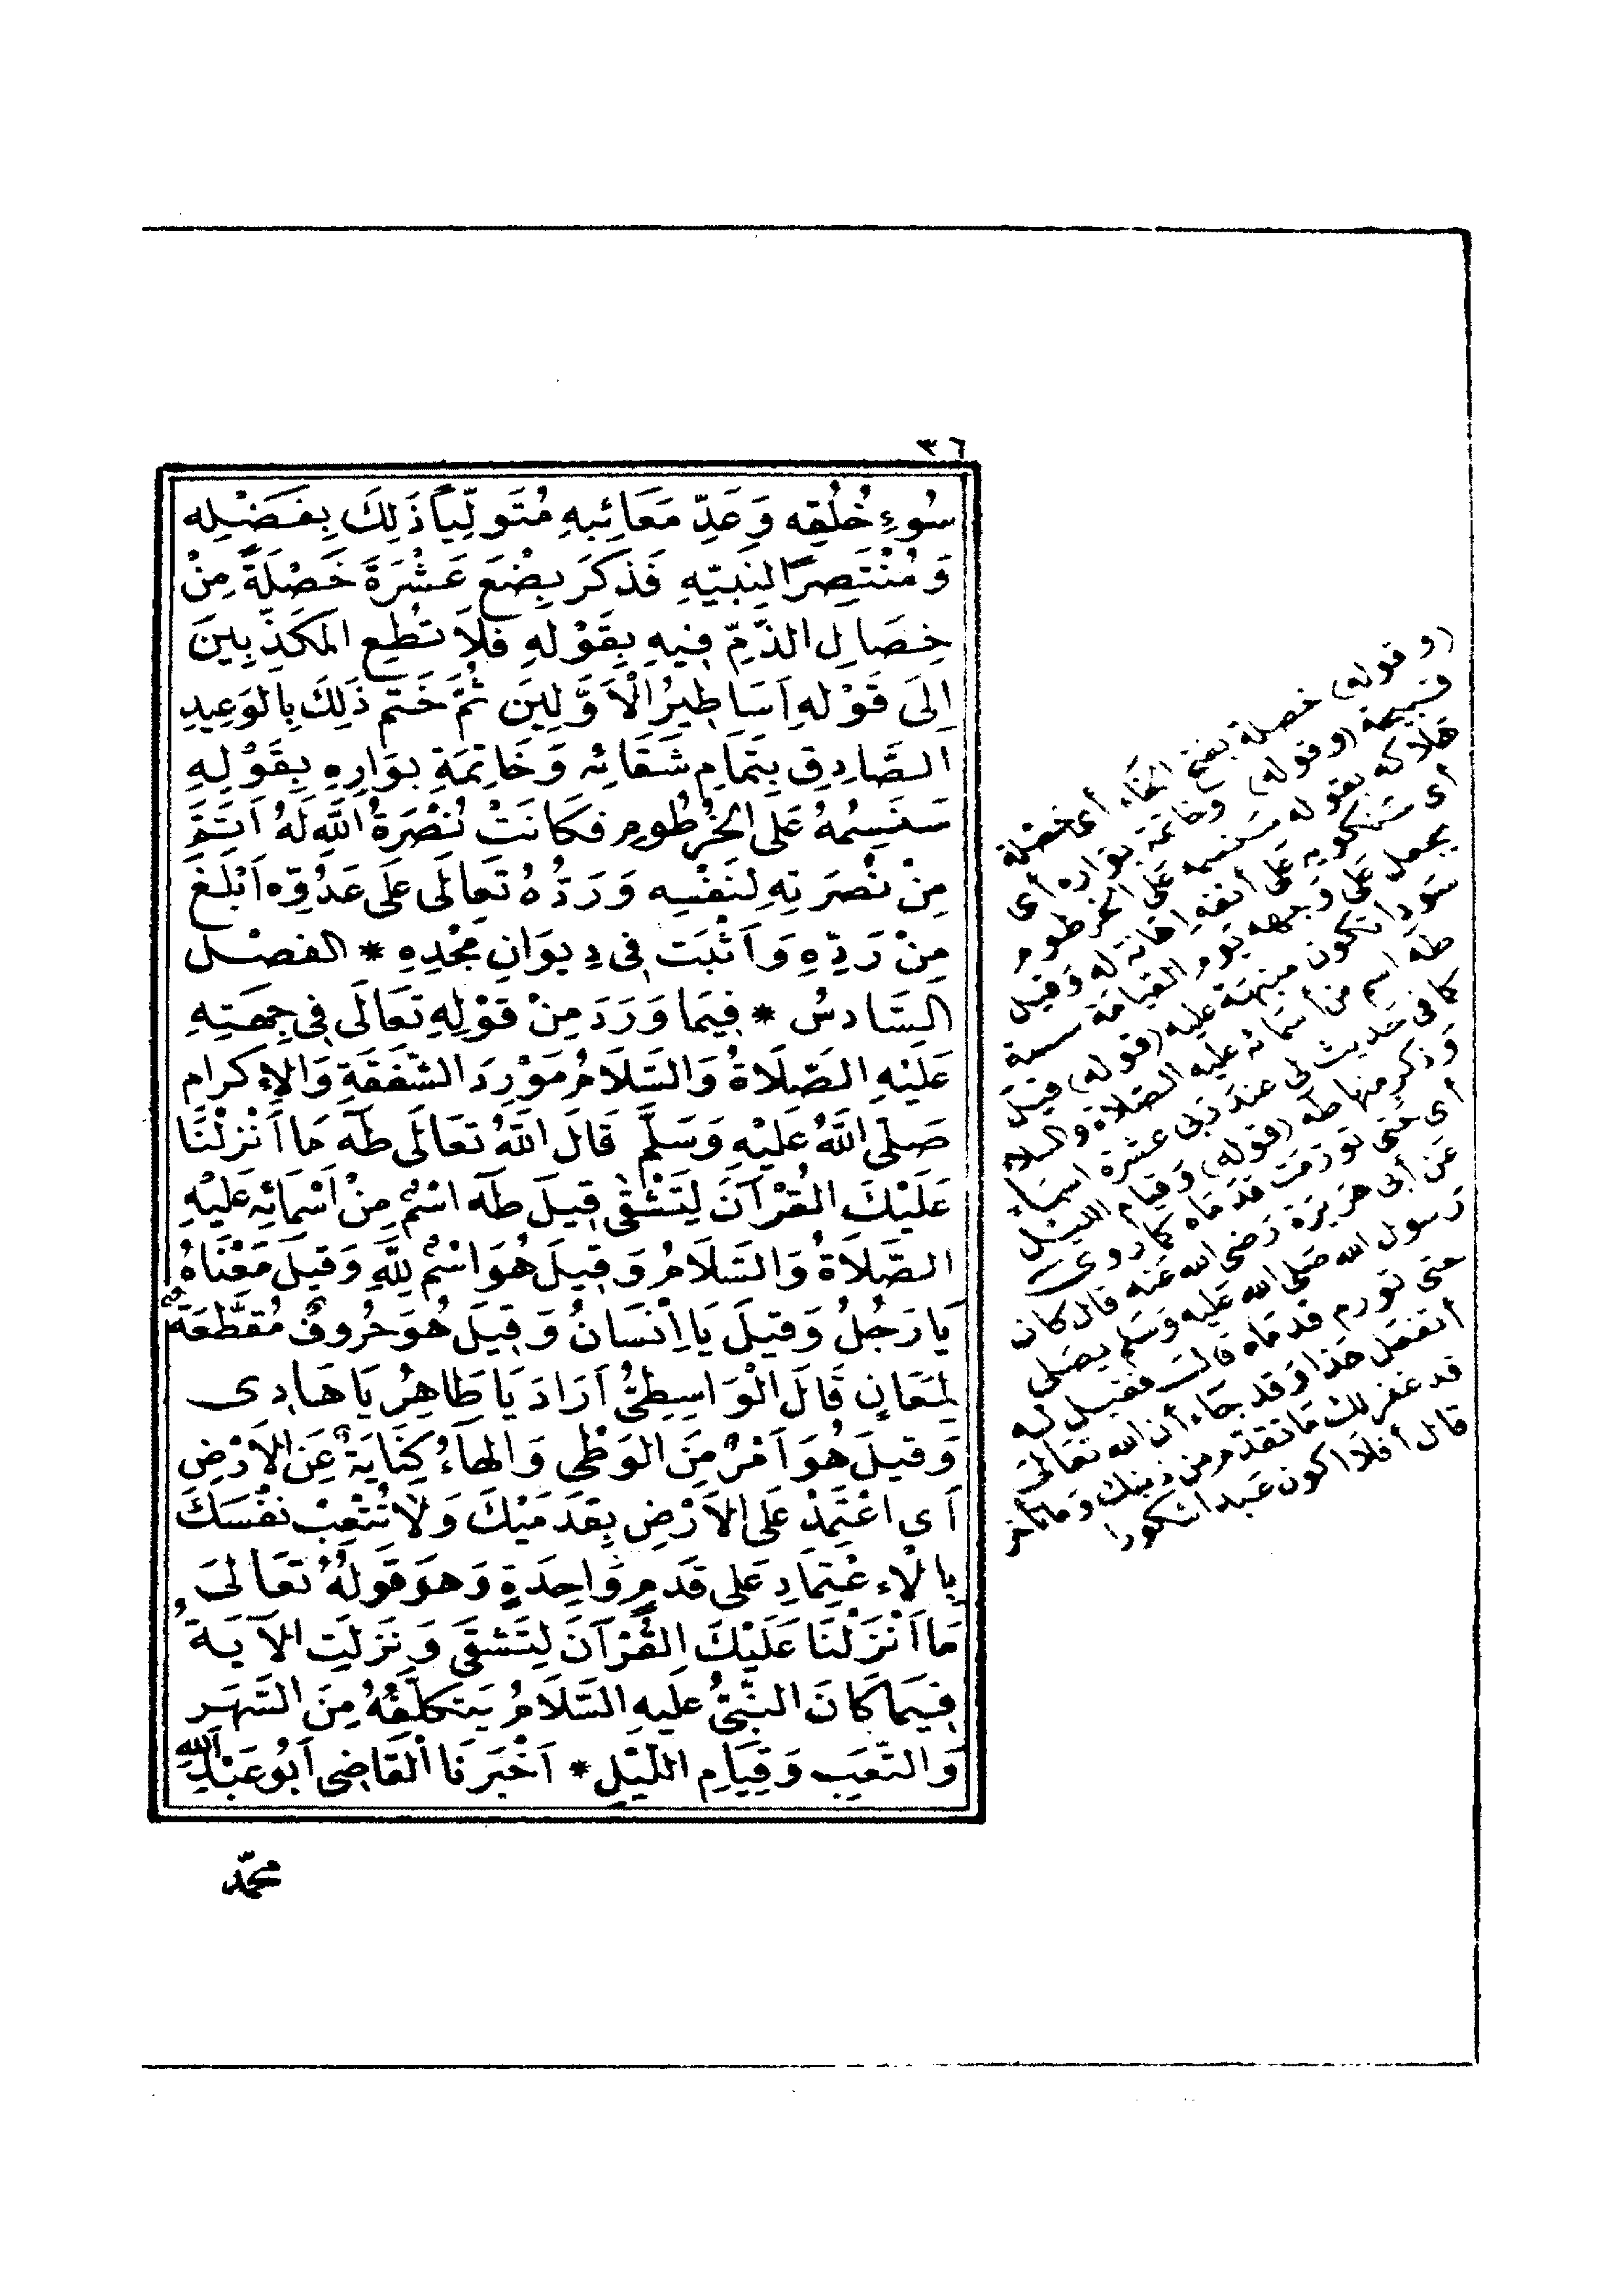 ٣٦
سُوءِ خُلُقِهِ وَعَدِّ مَعَائِبِهِ مُتَوَلِّيًا ذَلِكَ بِفَضْلِهِ
وَمُنْتَصِرًا لِنَبِيِّهِ فَذَكَرَ بِضْعَ عَشْرَةَ خَصْلَةً مِنْ
خِصَالِ الذَّمِّ فِيهِ بِقَوْلِهِ فَلَا تُطِعِ الْمُكَذِّبِينَ
إِلَى قَوْلِهِ أَسَاطِيرُ الْأَوَّلِينَ ثُمَّ خَتَمَ ذَلِكَ بِالْوَعِيدِ
الصَّادِقِ بِتَمَامِ شَقَائِهِ وَخَاتِمَةِ بَوَارِهِ بِقَوْلِهِ
سَنَسِمُهُ عَلَى الْخُرْطُومِ فَكَانَتْ نُصْرَةُ اللَّهِ لَهُ أَتَمَّ
مِنْ نُصْرَتِهِ لِنَفْسِهِ وَرَدُّهُ تَعَالَى عَلَى عَدُوِّهِ أَبْلَغَ
مِنْ رَدِّهِ وَأَثْبَتَ فِي دِيوَانِ مَجْدِهِ * الفصْل
السَّادِسُ * فِيمَا وَرَدَ مِنْ قَوْلِهِ تَعَالَى فِي جِهَتِهِ
عَلَيْهِ الصَّلَاةُ وَالسَّلَامُ مَوْرِدَ الشَّفَقَةِ وَالْإِكْرَامِ
صَلَّى اللَّهُ عَلَيْهِ وَسَلَّمَ قَالَ اللَّهُ تَعَالَى طَهَ مَا أَنْزَلْنَا
عَلَيْكَ الْقُرْآنَ لِتَشْقَى قِيلَ طَهَ اسْمٌ مِنْ أَسْمَائِهِ عَلَيْهِ
الصَّلَاةُ وَالسَّلَامُ وَقِيلَ هُوَ اسْمٌ لِلَّهِ وَقِيلَ مَعْنَاهُ
يَا رَجُلُ وَقِيلَ يَا إِنْسَانُ وَقِيلَ هُوَ حُرُوفٌ مُقَطَّعَةٌ
لِمَعَانٍ قَالَ الْوَاسِطِيُّ أَرَادَ يَا طَاهِرُ يَا هَادِي
وَقِيلَ هُوَ أَمْرٌ مِنَ الْوَطْيِ وَالْهَاءُ كِنَايَةٌ عَنِ الْأَرْضِ
أَيِ اعْتَمِدْ عَلَى الْأَرْضِ بِقَدَمَيْكَ وَلَا تُتْعِبْ نَفْسَكَ
بِالْاِعْتِمَادِ عَلَى قَدَمٍ وَاحِدَةٍ وَهُوَ قَوْلُهُ تَعَالَى
مَا أَنْزَلْنَا عَلَيْكَ الْقُرْآنَ لِتَشْقَى وَنَزَلَتِ الْآيَةُ
فِيمَا كَانَ النَّبِيُّ عَلَيْهِ السَّلَامُ يَتَكَلَّفُهُ مِنَ السَّهَرِ
وَالتَّعَبِ وَقِيَامِ اللَّيْلِ * أَخْبَرَنَا الْقَاضِي أَبُو عَبْدِ اللَّهِ
محمّد
(وقوله) خصلة بفتح الخاء أي خصلة
قبيحة (وقوله) وخاتمة بواره أي
هلاكه بقوله سنسمه على الخرطوم
أي سنكويه على أنفه إهانة له وقيل
يجعل على وجهه يوم القيامة سمة
سودا تكون منبهة عليه (قوله) قيل
طه اسم من أسمائه عليه الصلاة والسلام
كما في حديث لي عند ربي عشرة أسماء
وذكر منها طه (قوله) وقيام الليل
أي حتى تورمت قدماه كما روى
عن أبي هريرة رضي الله عنه قال كان
رسول الله صلى الله عليه وسلم يصلي
حتى تورم قدماه قال فقيل له
أتفعل هذا وقد جاء أن الله تعالى
قد غفر لك ما تقدم من ذنبك وما تأخر
قال أفلا أكون عبدا شكورا